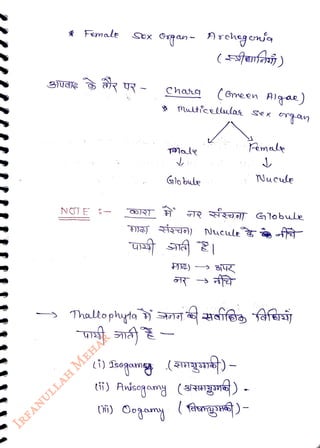 * Female Sex Organ - Archegonia
(स्त्रीधानियाँ)
अपवाद के तौर पर - Chara (Green Algae)
→ Multicellular Sex organ
Male Female
↓ ↓
Globule Nucule
NOTE :- कारा में नर संरचना Globule
मादा संरचना Nucule के नीचे
पायी जाती है।
मादा → ऊपर
नर → नीचे
→ Thallophyta में जनन की सर्वाधिक विधियां
पायी जाती है -
(i) Isogamy (समयुग्मकी) -
(ii) Anisogamy (असमयुग्मकी) -
(iii) Oogamy (विषमयुग्मकी) -
IRFANULLAH MEHAR